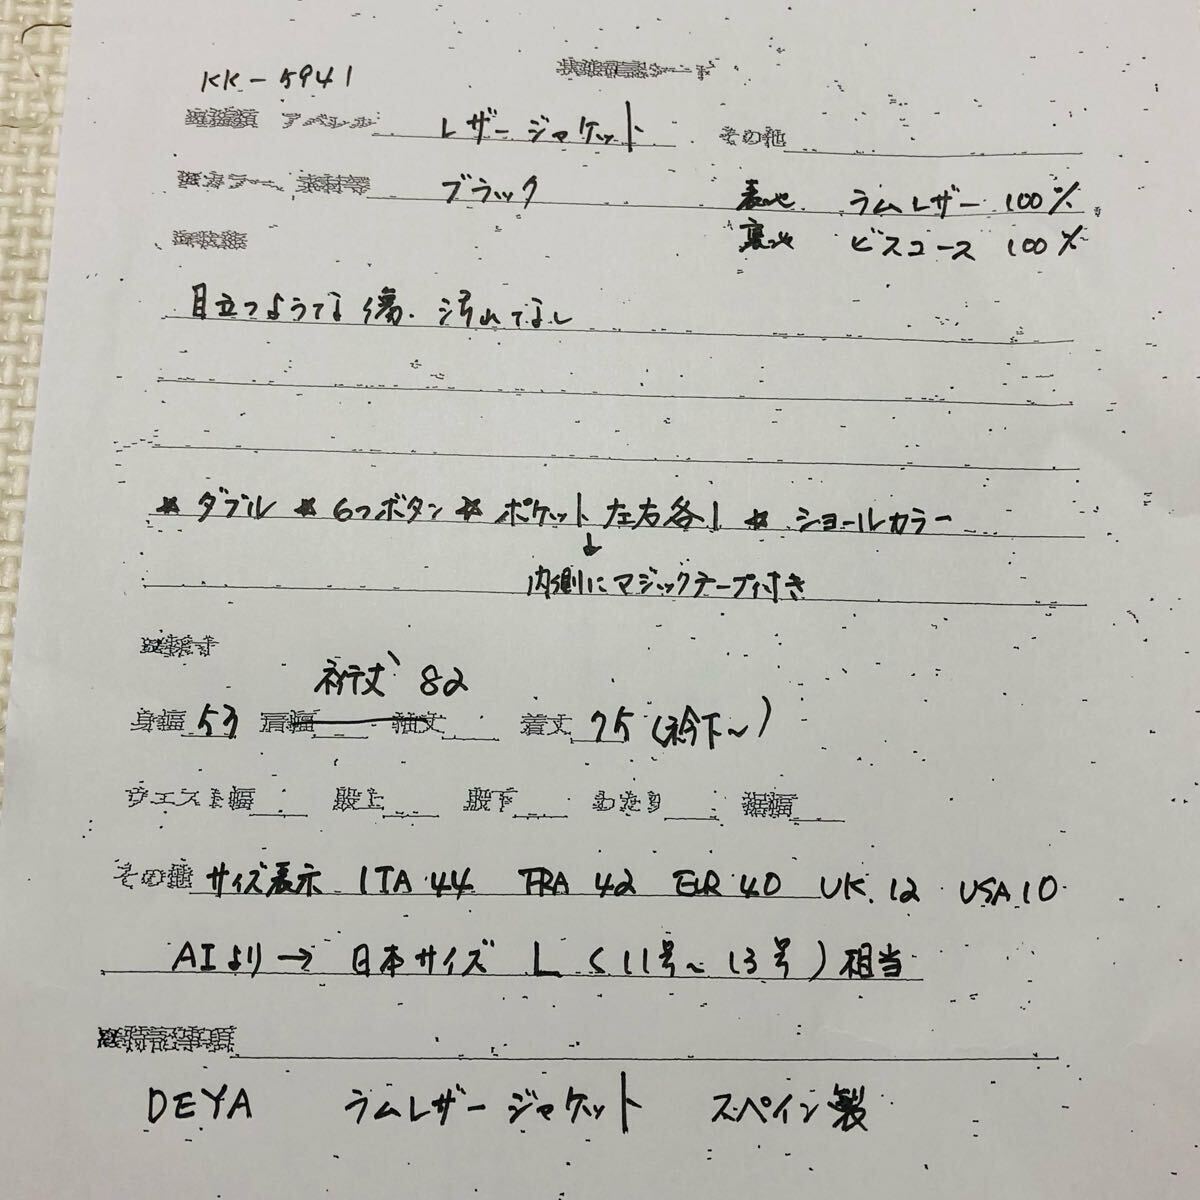 KK-5941
状態確認シート
アパレル レザージャケット その他
カラー、素材等 ブラック 表地 ラムレザー 100%
裏地 ビスコース 100%
目立つような傷、汚れなし
★ダブル ★6つボタン ★ポケット左右各1 ★ショールカラー
↓
内側にマジックテープ付き
裄丈 82
身幅 53 肩幅 袖丈 着丈 75(衿下〜)
ウエスト幅 股上 股下 わたり 裾幅
その他 サイズ表示 ITA 44 FRA 42 EUR 40 UK.12 USA 10
AIより→日本サイズ L (11号〜13号)相当
特記事項
DEYA ラムレザージャケット スペイン製